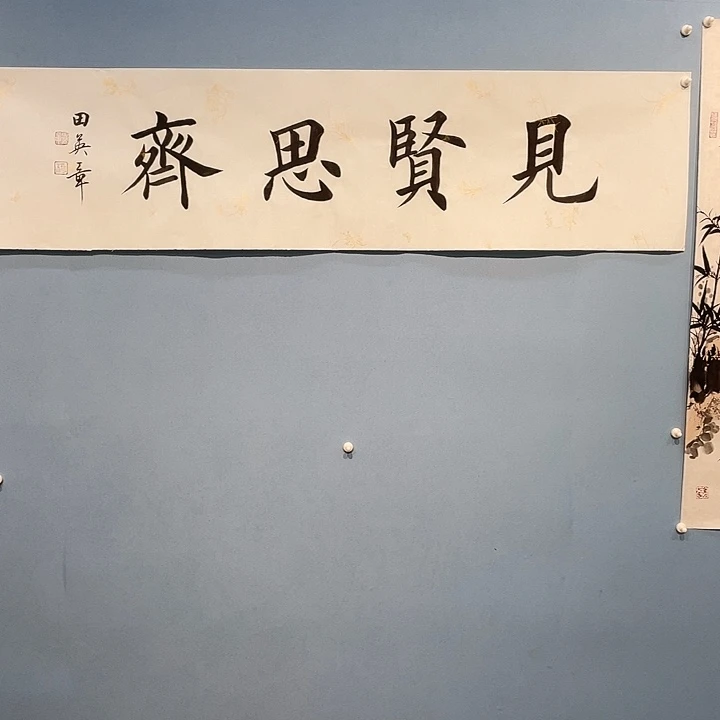 見賢思齊
田英章